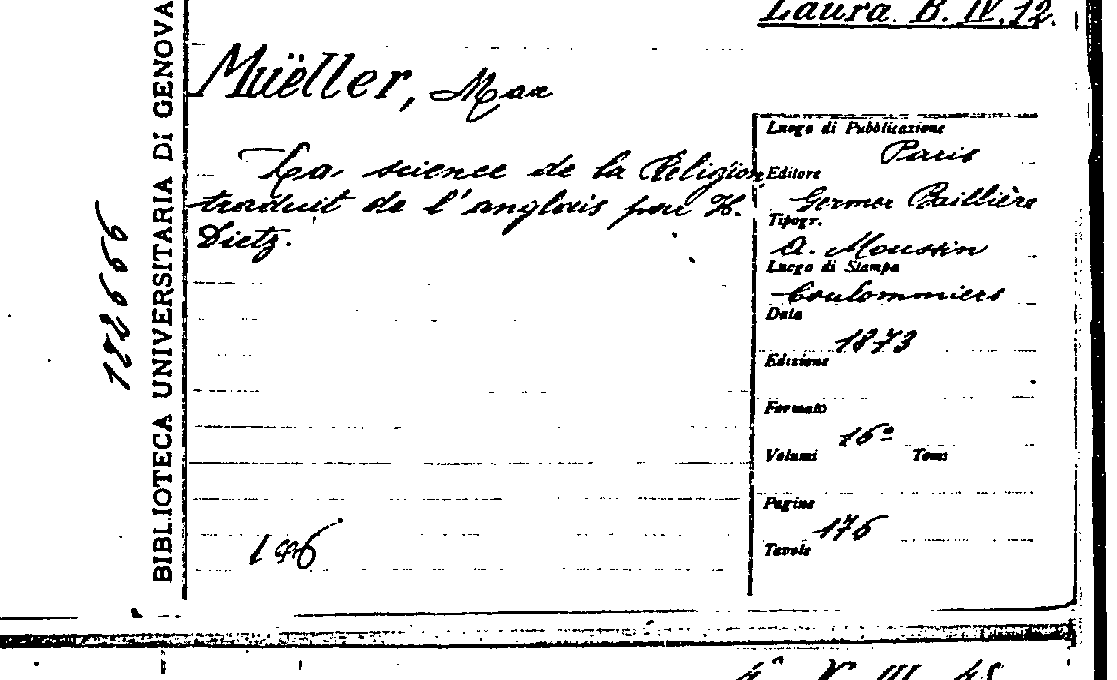 Laura B. IV. 12.
BIBLIOTECA UNIVERSITARIA DI GENOVA
Muëller, Max
La science de la Religion,
traduit de l'anglais par H.
Dietz.
Luogo di Pubblicazione
Paris
Editore
Germer Baillière
Tipogr.
A. Moussin
Luogo di Stampa
Coulommiers
Data
1873
Edizione
Formato
16º
Volumi Tomi
Pagine
176
Tavole